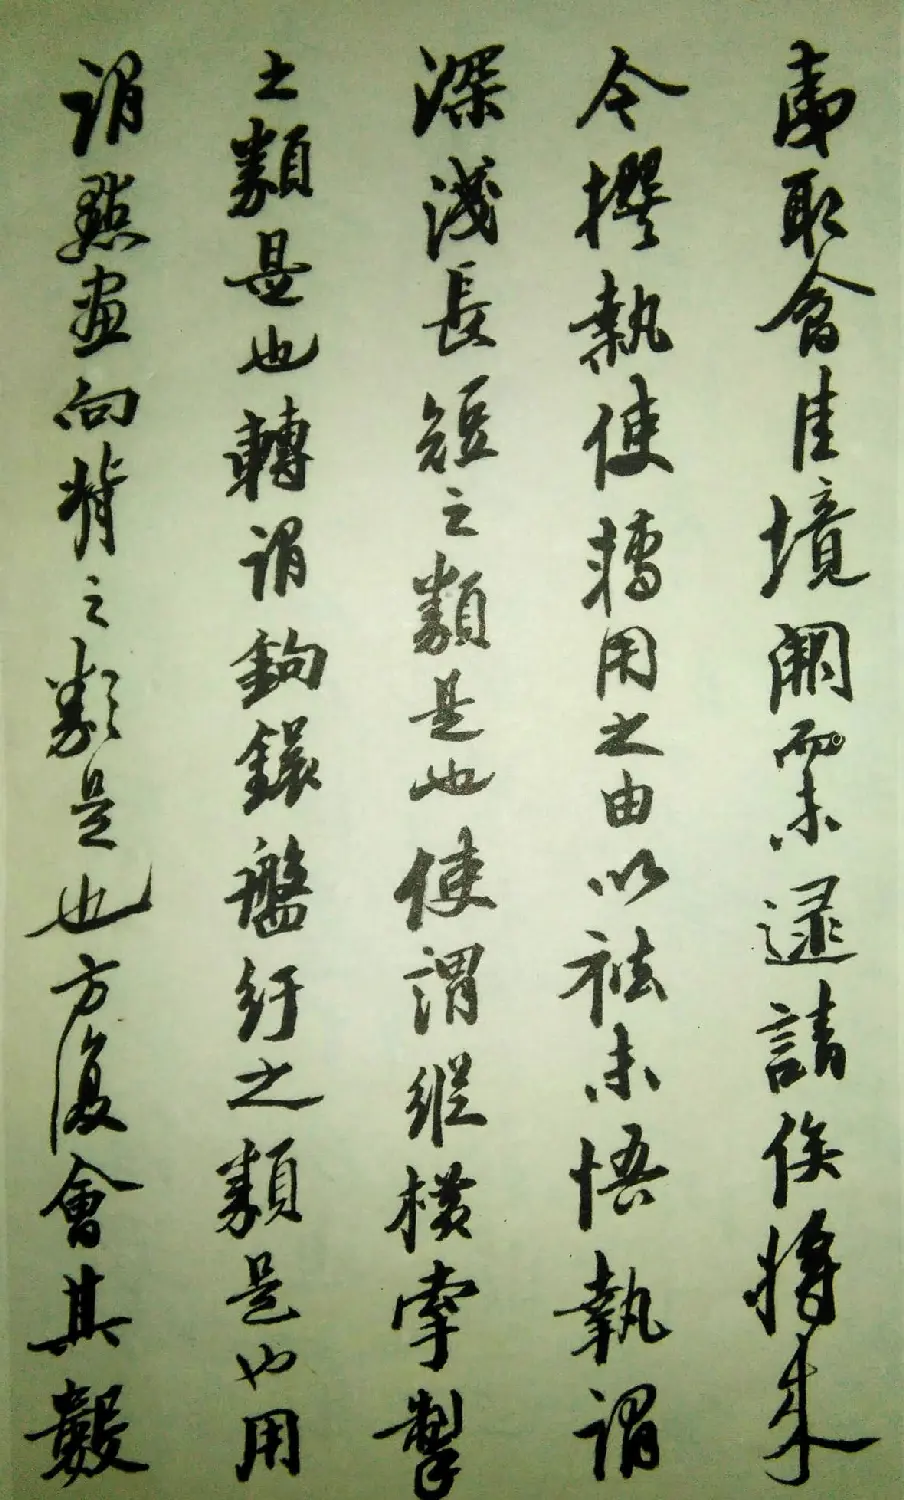 夷取會佳境闕而未逮請俟將来
今撰執使轉用之由以祛未悟執謂
深淺長短之類是也使謂縱橫牽掣
之類是也轉謂鉤鐶盤紆之類是也用
謂點畫向背之類是也方復會其數